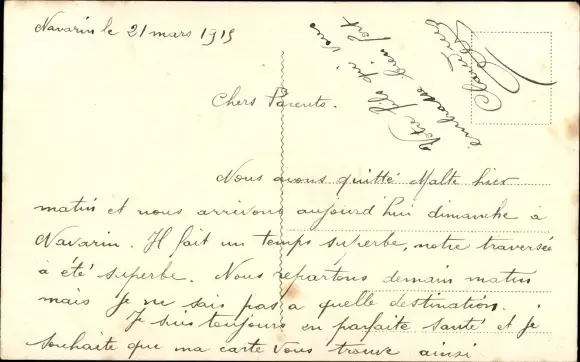 Navarin le 21 mars 1915
Chers Parents.
Nous avons quitté Malte hier
matin et nous arrivons aujourd'hui dimanche à
Navarin. Il fait un temps superbe, notre traversée
à été superbe. Nous repartons demain matin
mais je ne sais pas a quelle destination.
Je suis toujours en parfaite santé et je
souhaite que ma carte vous trouve ainsi
Votre fils qui vous
embrasse bien fort